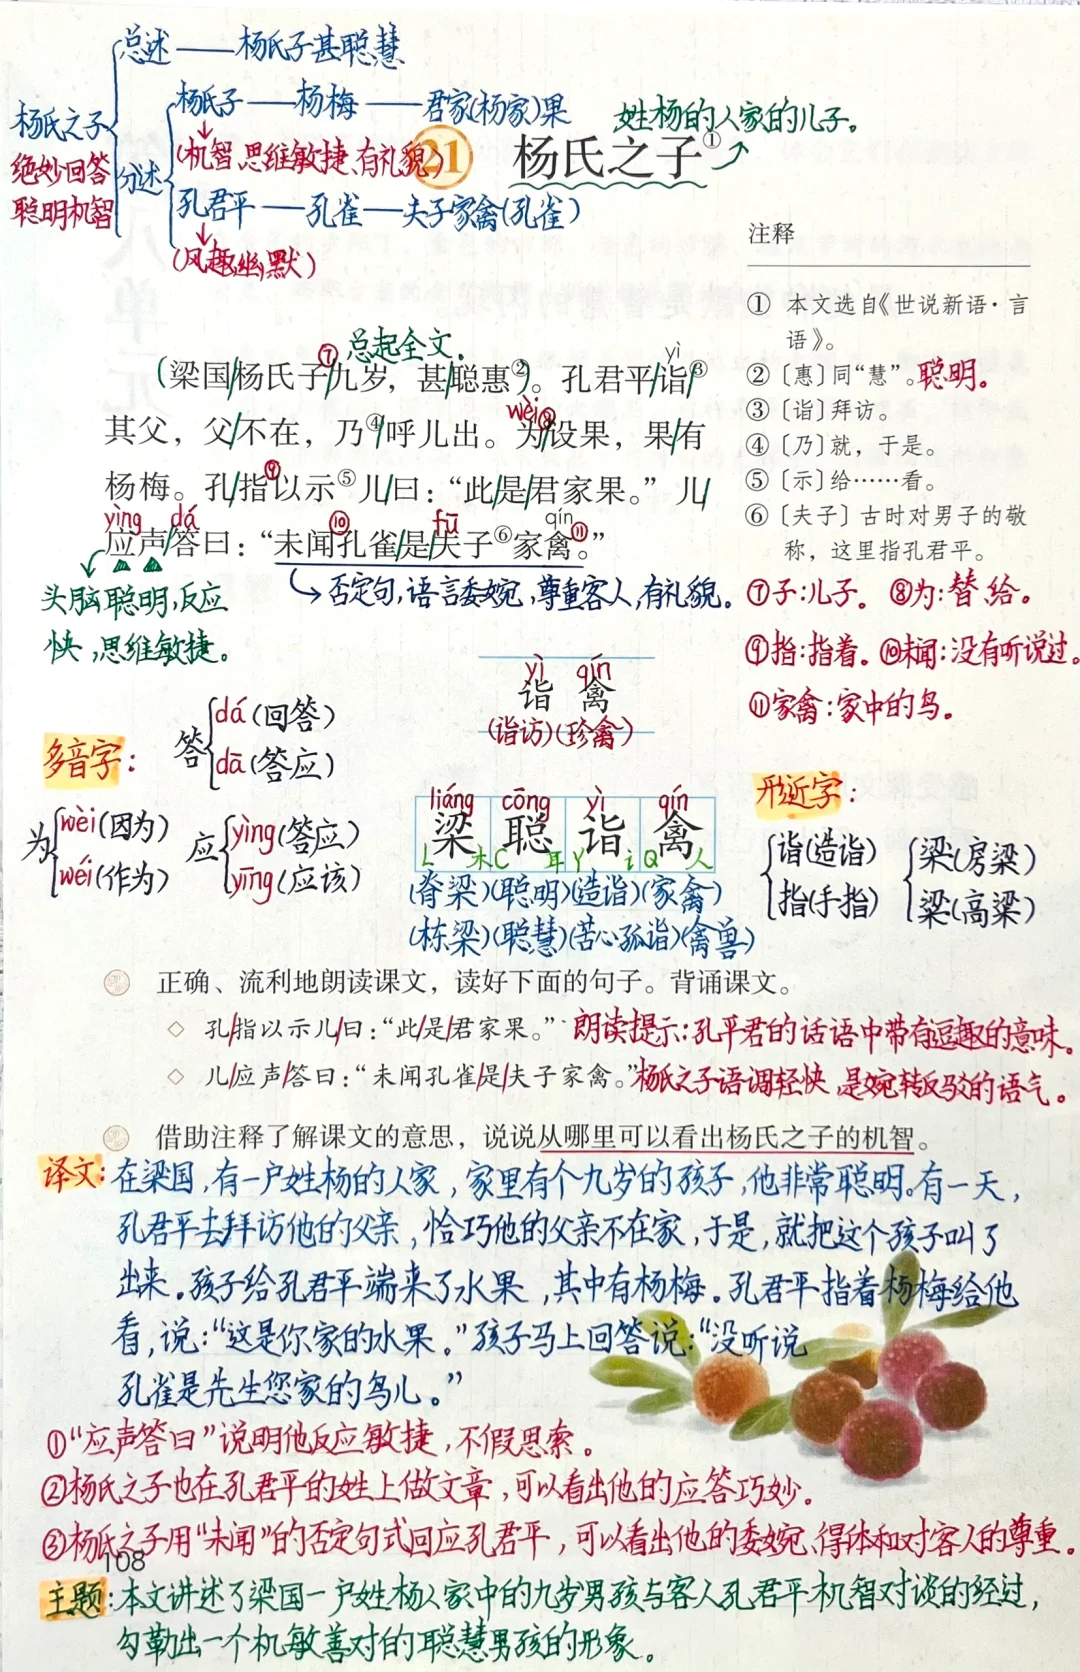 总述——杨氏子甚聪慧
杨氏子——杨梅——君家(杨家)果
杨氏之子
绝妙回答
聪明机智
分述
(机智、思维敏捷、有礼貌)
孔君平——孔雀——夫子家禽(孔雀)
(风趣幽默)
姓杨的人家的儿子。
21 杨氏之子①
注释
① 本文选自《世说新语·言
语》。
②〔惠〕同“慧”。聪明。
③〔诣〕拜访。
④〔乃〕就，于是。
⑤〔示〕给……看。
⑥〔夫子〕古时对男子的敬
称，这里指孔君平。
⑦子:儿子。 ⑧为:替、给。
⑨指:指着。⑩未闻:没有听说过。
⑪家禽:家中的鸟。
⑦ 总起全文。 yì
(梁国/杨氏子/九岁，甚/聪惠②)。孔君平/诣/③
wèi⑧
其父，父/不在，乃④/呼儿出。为/设果，果/有
⑨
杨梅。孔/指以示⑤儿/曰：“此/是/君家果。”儿/
yìng dá ⑩ fū qín ⑪
应声/答曰：“未闻孔雀/是/夫子⑥家禽。”
头脑聪明,反应
快,思维敏捷。
否定句,语言委婉,尊重客人,有礼貌。
yì qín
诣 禽
(诣访)(珍禽)
多音字:
答 dá(回答)
dā(答应)
为 wèi(因为)
wéi(作为)
应 yìng(答应)
yīng(应该)
liáng cōng yì qín
梁 聪 诣 禽
L 木 C 耳 Y i Q 人
(脊梁)(聪明)(造诣)(家禽)
(栋梁)(聪慧)(苦心孤诣)(禽兽)
形近字:
诣(造诣)
指(手指)
梁(房梁)
粱(高粱)
正确、流利地朗读课文，读好下面的句子。背诵课文。
◇ 孔/指以示儿/曰：“此/是/君家果。” 朗读提示:孔平君的话语中带有逗趣的意味。
◇ 儿/应声/答曰：“未闻孔雀/是/夫子家禽。” 杨氏之子语调轻快,是婉转反驳的语气。
借助注释了解课文的意思，说说从哪里可以看出杨氏之子的机智。
译文:在梁国,有一户姓杨的人家,家里有个九岁的孩子,他非常聪明。有一天,
孔君平去拜访他的父亲,恰巧他的父亲不在家,于是,就把这个孩子叫了
出来。孩子给孔君平端来了水果,其中有杨梅。孔君平指着杨梅给他
看,说:“这是你家的水果。”孩子马上回答说:“没听说
孔雀是先生您家的鸟儿。”
①“应声答曰”说明他反应敏捷,不假思索。
②杨氏之子也在孔君平的姓上做文章,可以看出他的应答巧妙。
③杨氏之子用“未闻”的否定句式回应孔君平,可以看出他的委婉、得体和对客人的尊重。
108
主题:本文讲述了梁国一户姓杨人家中的九岁男孩与客人孔君平机智对谈的经过,
勾勒出一个机敏善对的聪慧男孩的形象。